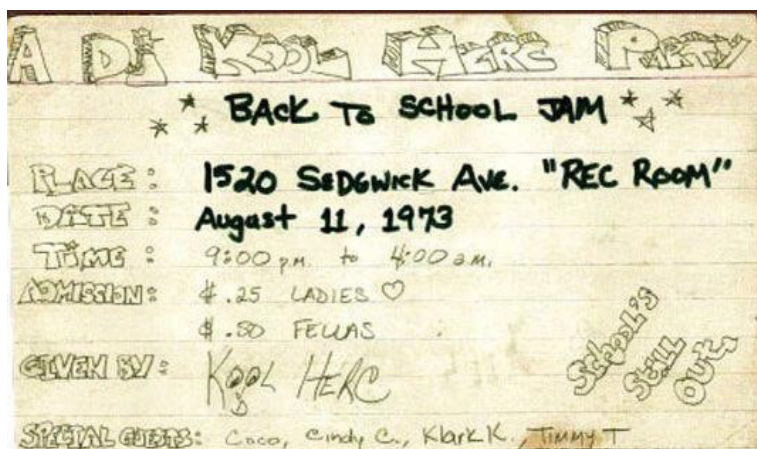 A DJ KOOL HERC PARTY
BACK TO SCHOOL JAM
PLACE: 1520 SEDGWICK AVE. "REC ROOM"
DATE: August 11, 1973
TIME: 9:00 p.m. to 4:00 a.m.
ADMISSION: $.25 LADIES ♡
$.50 FELLAS
GIVEN BY: KOOL HERC
SCHOOL'S STILL OUT,
SPECIAL GUESTS: Coco, Cindy C., Klark K., TIMMY T